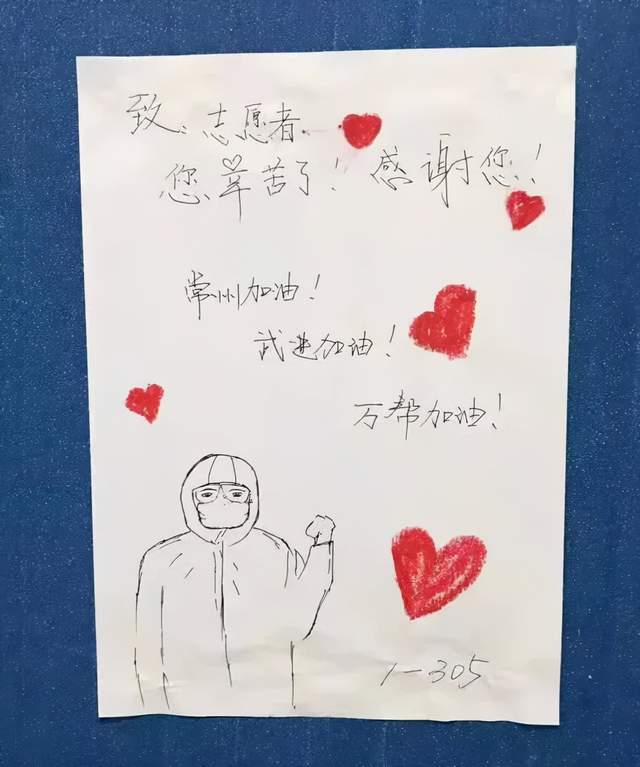 致、志愿者
您辛苦了！感谢您！
常州加油！
武进加油！
万帮加油！
1-305